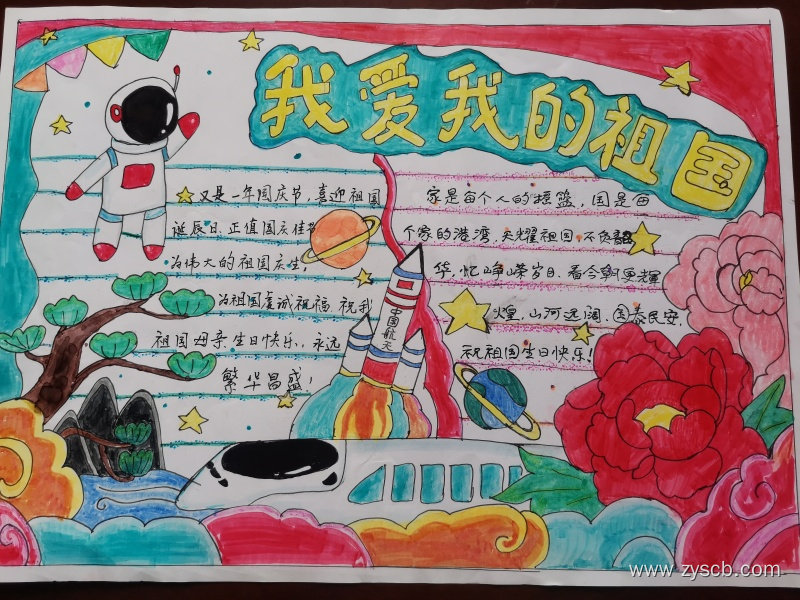 我爱我的祖国
又是一年国庆节,喜迎祖国
诞辰日.正值国庆佳节
为伟大的祖国庆生,
为祖国虔诚祝福.祝我
祖国母亲生日快乐,永远
繁华昌盛!
家是每个人的摇篮,国是每
个家的港湾,光耀祖国,不负韶
华,忆峥嵘岁月,看今朝更輝
煌,山河远阔,国泰民安,
祝祖国生日快乐!
中国航天
www.zyscb.com